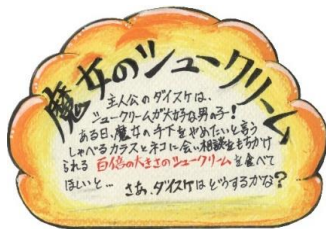 魔女のシュークリーム
主人公のダイスケは、
シュークリームが大好きな男の子!
ある日、魔女の手下をやめたいと言う
しゃべるカラスとネコに会い相談をもちかけ
られる 百倍の大きさのシュークリームを食べて
ほしいと… さあ、ダイスケはどうするかな?